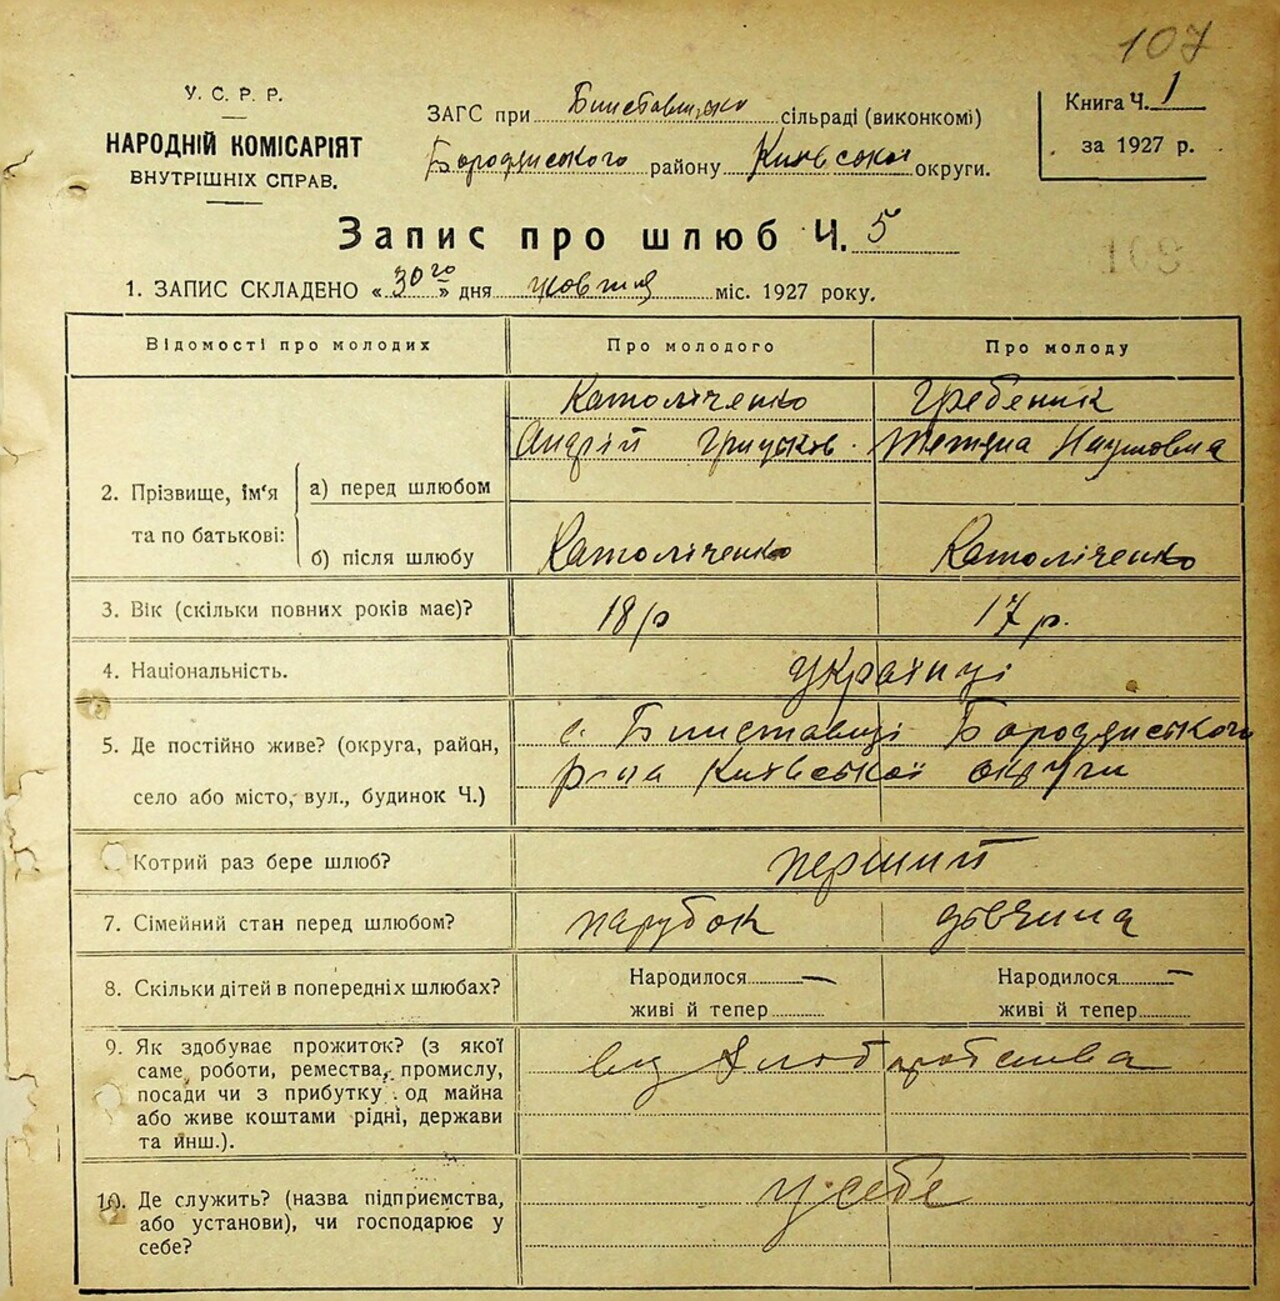 107
У. С. Р. Р.
НАРОДНІЙ КОМІСАРІЯТ
ВНУТРІШНІХ СПРАВ.
ЗАГС при сільраді (виконкомі)
Бородянського району Київської округи.
Книга Ч. 1
за 1927 р.
Запис про шлюб Ч. 5
109
1. ЗАПИС СКЛАДЕНО «30го» дня жовтня міс. 1927 року.
Відомості про молодих
Про молодого
Про молоду
2. Прізвище, ім'я та по батькові:
а) перед шлюбом
Католіченко
Андрій Грицьков.
Гребеник
Тетяна Наумовна
б) після шлюбу
Католіченко
Католіченко
3. Вік (скільки повних років має)?
18 р
17 р.
4. Національність.
українці
5. Де постійно живе? (округа, район,
село або місто, вул., будинок Ч.)
с. Блиставиці Бородянського
р-на Київської округи
Котрий раз бере шлюб?
перший
7. Сімейний стан перед шлюбом?
парубок
дівчина
8. Скільки дітей в попередніх шлюбах?
Народилося —
живі й тепер
Народилося —
живі й тепер
9. Як здобуває прожиток? (з якої
саме роботи, ремества, промислу,
посади чи з прибутку од майна
або живе коштами рідні, держави
та инш.).
від хлібробства
10. Де служить? (назва підприємства,
або установи), чи господарює у
себе?
у себе